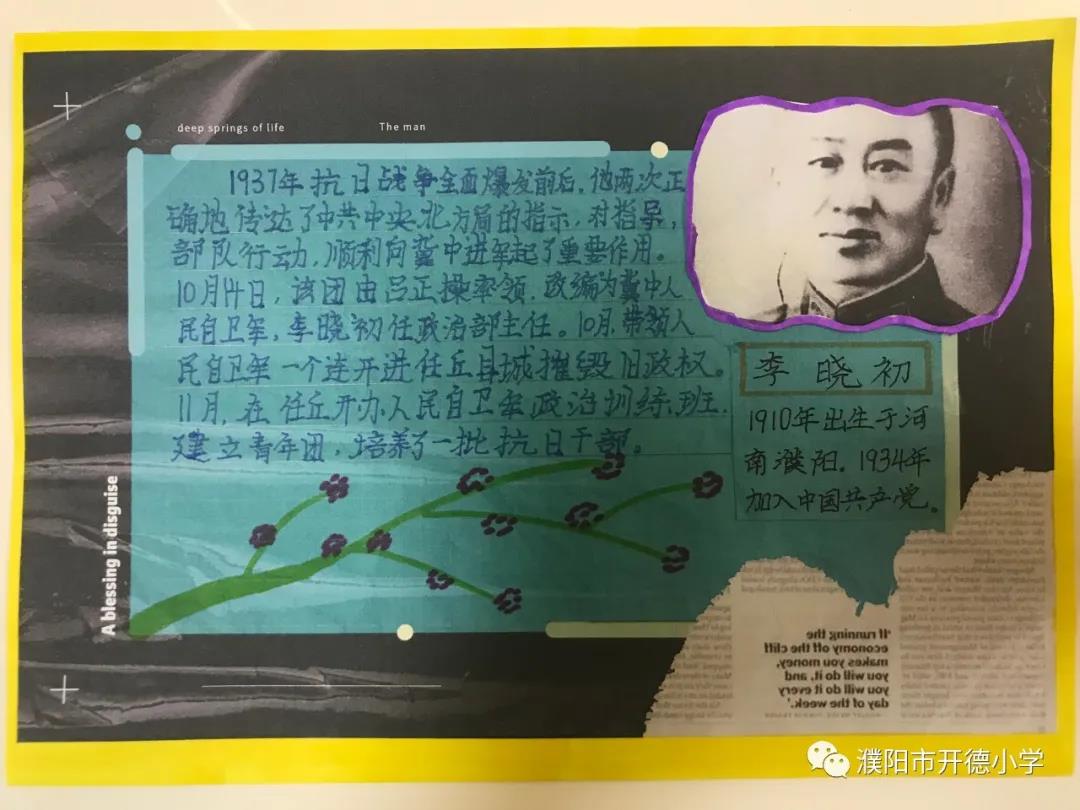 deep springs of life
The man
1937年抗日战争全面爆发前后，他两次正
确地传达了中共中央北方局的指示，对指导，
部队行动，顺利向冀中进军起了重要作用。
10月14日，该团由吕正操率领，改编为冀中人
民自卫军，李晓初任政治部主任。10月，带领人
民自卫军一个连开进任丘县城摧毁旧政权。
11月，在任丘开办人民自卫军政治训练班，
建立青年团，培养了一批抗日干部。
李晓初
1910年出生于河
南濮阳。1934年
加入中国共产党。
A blessing in disguise
'If running the
economy off the cliff
makes you money,
you will do it, and
you will do it every
day of the week.'
濮阳市开德小学